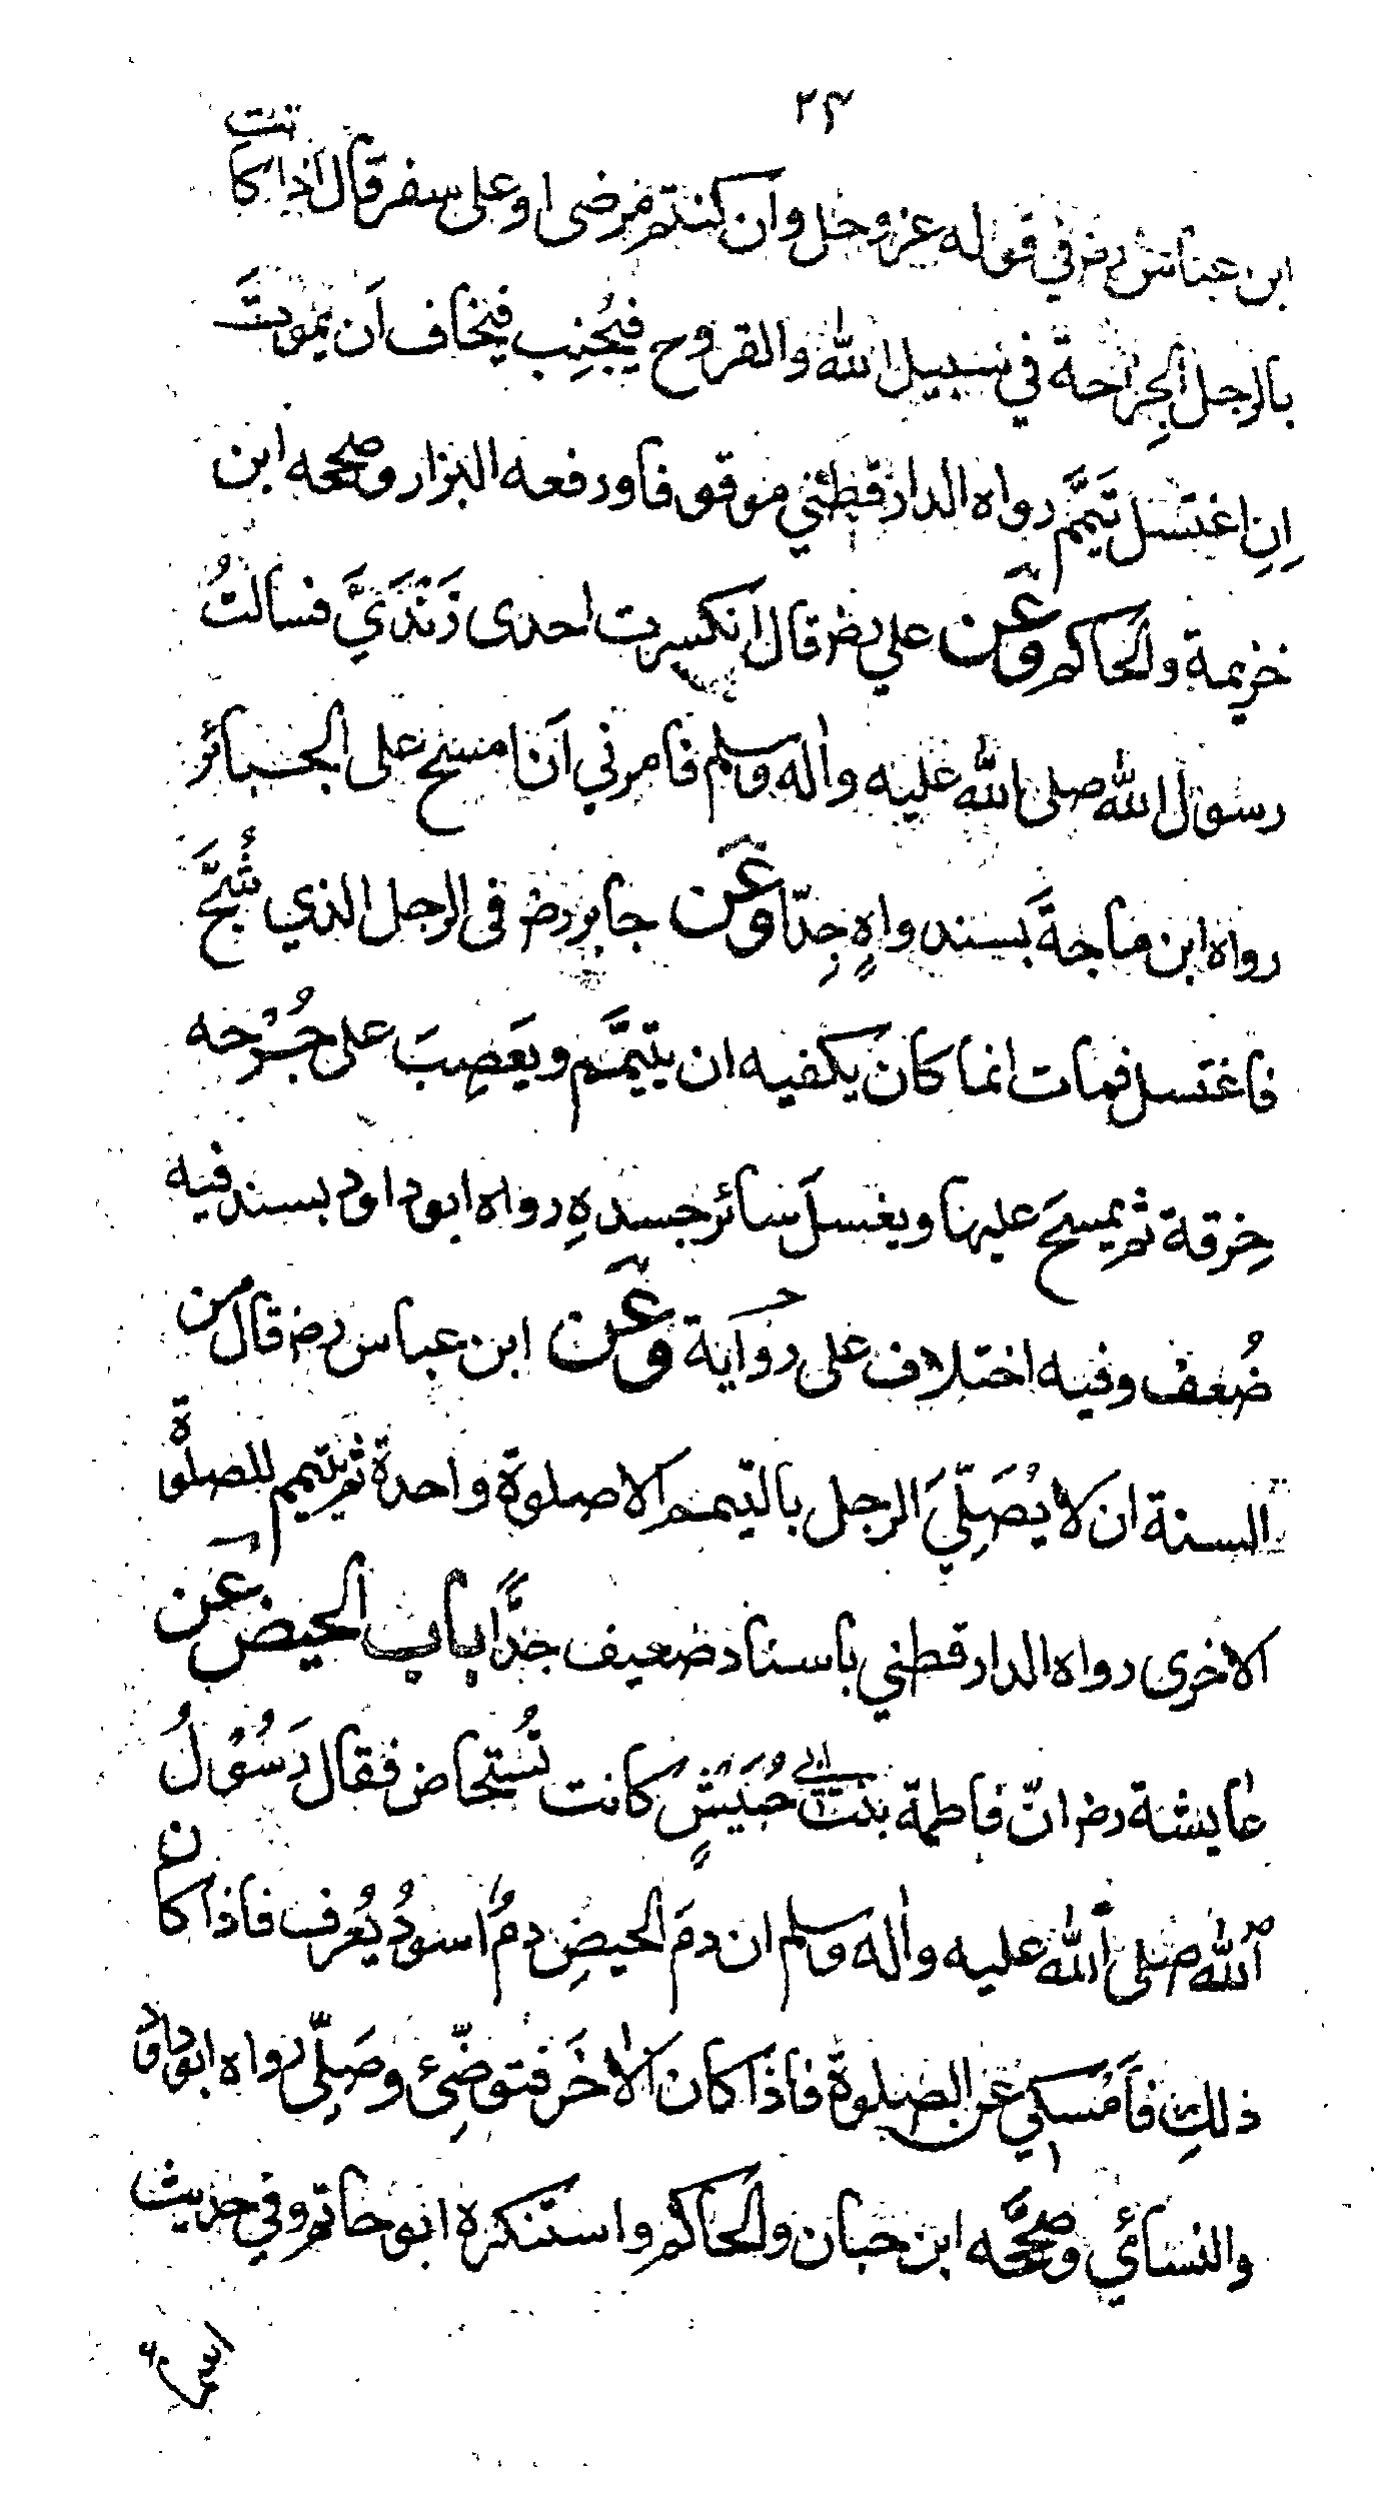 ٢٣
ابن عباس رض في قوله عزوجل وان كنتم مرضى اوعلى سفر قال اذا كانت
بالرجل الجِراحة في سبيل الله والقروح فيُجنِب فيخاف اَن يموتَ
اِنِ اغتسل تَيمَّم رواه الدارقطني موقوفا ورفعه البزار وصححه ابن
خزيمة والحاكم وعَن علي رض قال انكسرت احدى زَنْدَيَّ فسالتُ
رسول الله صلى الله عليه واٰله وسلم فامرني اَن امسح على الجبائر
رواه ابن ماجةَ بسند واهٍ جِدّا وعَن جابر رض فى الرجل الذي شُجَّ
فاغتسل فمات انما كان يكفيه ان يتيمَّم ويَعصِبَ على جُرْحه
خِرقة ثم يمسحَ عليها ويغسلَ سائر جسدهِ رواه ابوداود بسند فيه
ضُعفْ وفيه اختلاف على رواية وعَن ابن عباس رض قال من
السنة ان لا يُصَلِّيَ الرجل بالتيمم الا صلوة واحدة ثم يتيمم للصلوٰة
الاخرى رواه الدارقطني باسناد ضعيف جدًّا باب الحيض عَن
عايشة رض انّ فاطمة بنت ابي حُبَيشٍ كانت تُستحاض فقال رَسُوْلُ
الله صلى الله عليه واٰله وسلم ان دمَ الحيضِ دمٌ اسودُ يُعرف فاذا كان
ذلكِ فاَمْسكي عن الصلوة فاذا كان الاٰخَر فتوضّئ وصَلِّى رواه ابوداود
والنسائي وصحَّحه ابن حبان والحاكم واستنكره ابو حاتم وفي حديث